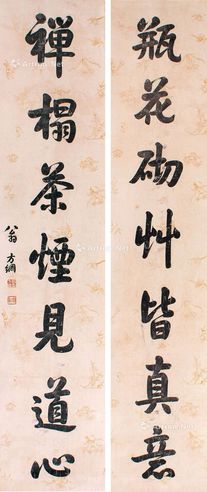 瓶花砌艸皆真意
禪榻茶煙見道心
翁方綱